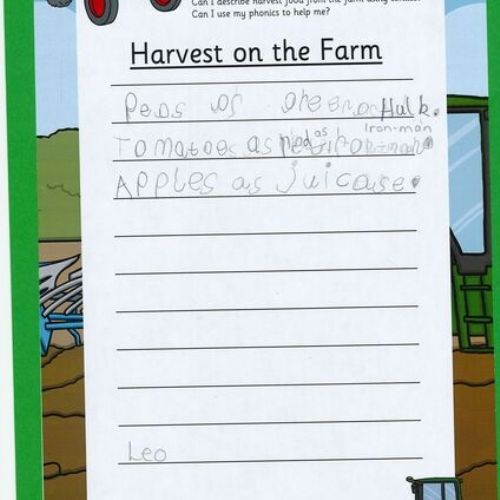 Can I describe harvest food from the farm using similes?
Can I use my phonics to help me?
Harvest on the Farm
Peas as green as Hulk.
Tomatoes as red as Iron-man
APPles as juicase.
Leo